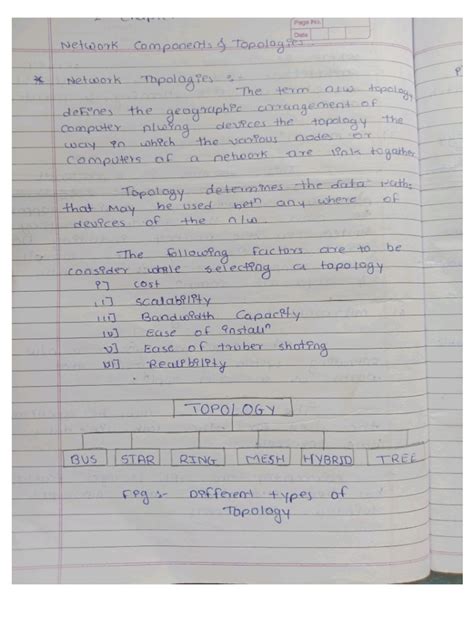 Page No.
Date
Network Components & Topologies
* Network Topologies :
The term n/w topology
defines the geographic arrangement of
computer n/wing devices the topology the
way in which the various nodes or
Computers of a network are link togather
Topology determines the data paths
that may be used betn any where of
devices of the n/w.
The following factors are to be
consider while selecting a topology
i] cost
ii] Scalability
iii] Bandwidth Capacity
iv] Ease of installn
v] Ease of truber shoting
vi] Realibility
TOPOLOGY
BUS STAR RING MESH HYBRID TREE
Fig :- Different types of
Topology